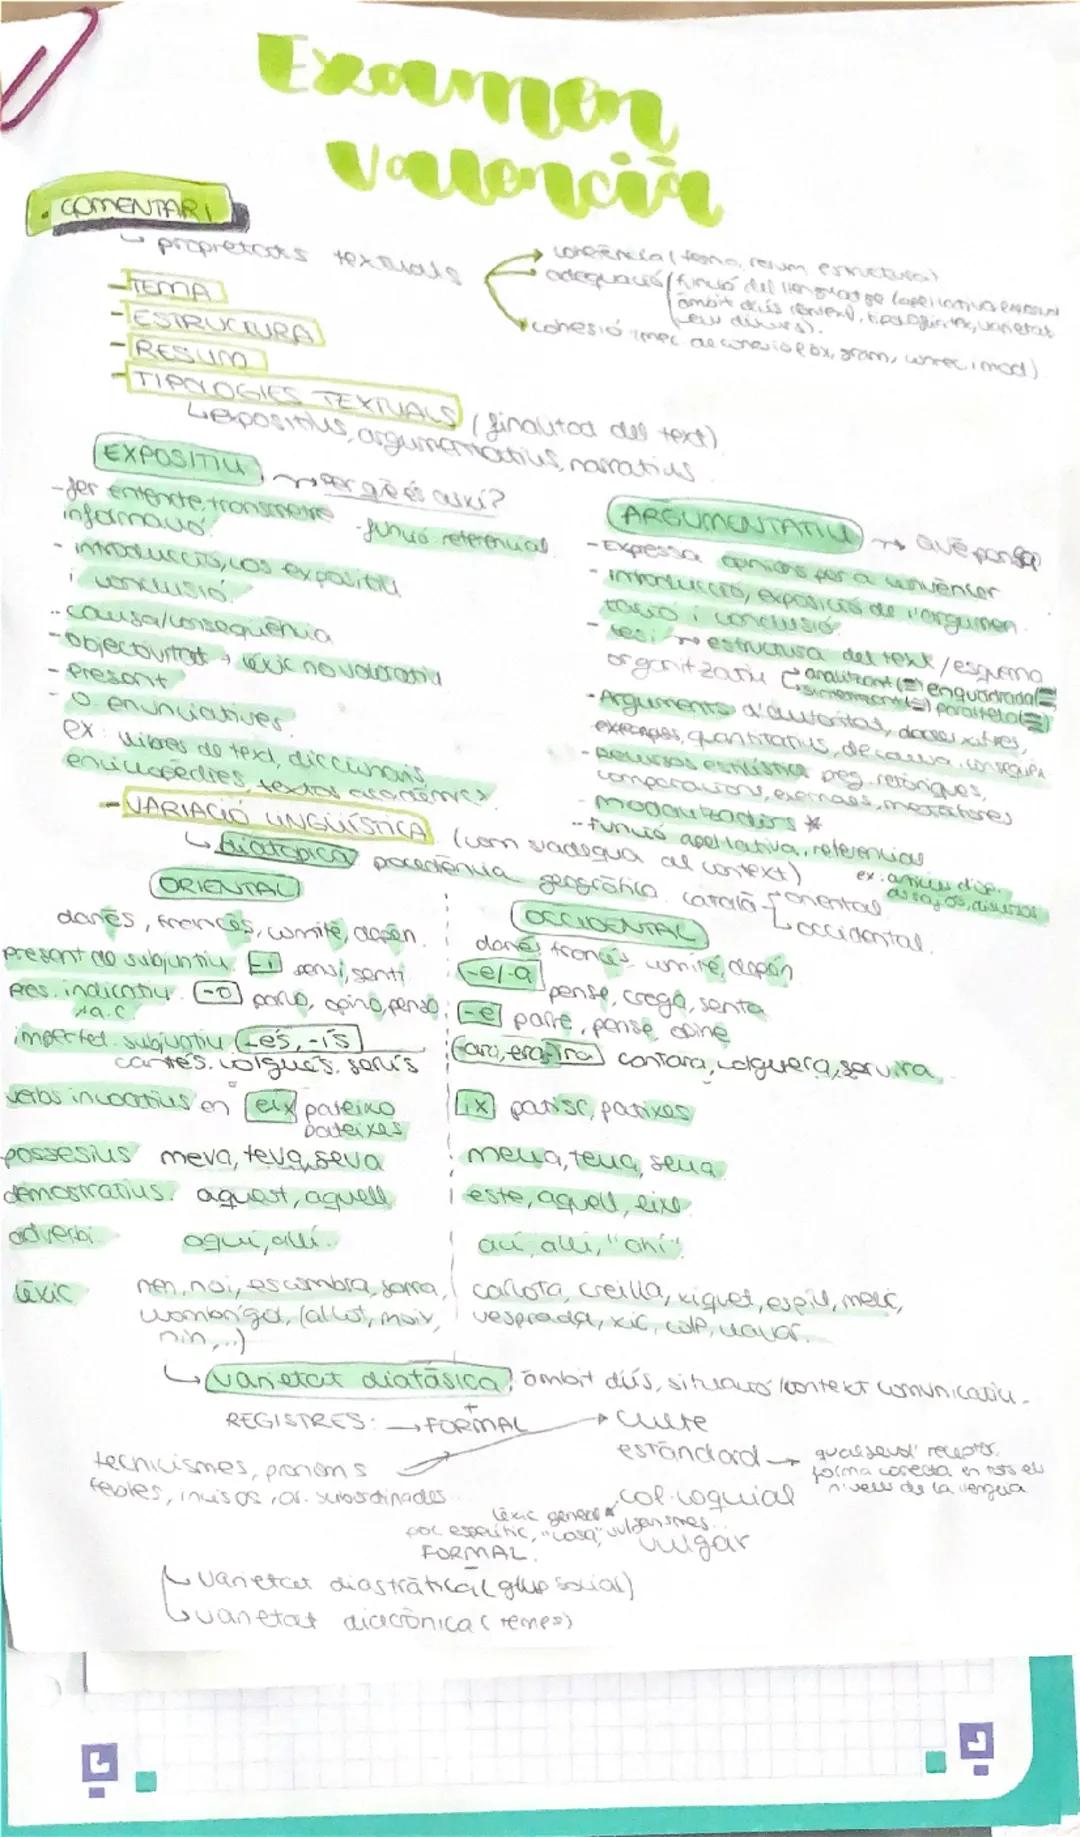 Examen
Valencià
• COMENTARI
↳ propietats textuals
→ coherència (tema, resum estructura)
→ adequació (funció del llenguatge (apel·lativa
àmbit d'ús, varietat
→ cohesió (mec. de conexió lèx, gram, i mod)
- TEMA
- ESTRUCTURA
- RESUM
- TIPOLOGIES TEXTUALS (finalitat del text)
↳ expositius, argumentatius, narratius
EXPOSITIU → per què és així?
- fer entendre, transmetre
informació
- funció referencial
- introducció, cos expositiu
i conclusió.
- causa/conseqüència
- objectivitat → lèxic no valoratiu
- Present
- O. enunciatives
ex: llibres de text, diccionaris,
enciclopèdies, textos acadèmics
ARGUMENTATIU → què pensa
- Expressa opinions per a convèncer
- introducció, exposició de l'argumen-
tació i conclusió
- tesi → estructura del text/esquema
organitzatiu analitzant (=) enquadrada (=)
paral·lela (=)
- Arguments d'autoritat, dades xifres,
exemples, quantitatius, de causa conseqüèn
- Recursos estilístics preg. retòriques,
comparacions, metàfores
- modalitzadors *
- Funció apel·lativa, referencial
ex: articles d'op.
assajos, discursos
- VARIACIÓ LINGÜÍSTICA (com s'adequa al context)
↳ diatòpica procedència geogràfica. català oriental
occidental.
ORIENTAL
danès, francès, comitè, depèn.
present de subjuntiu -i sensi, senti
pres. indicatiu -o parlo, opino, penso
imperfet. subjuntiu -és, -ís
cantés. volgués. servís
verbs incoatius en eix pateixo
pateixes
possesius meva, teva, seva
demostratius. aquest, aquell
adverbi aquí, allí.
lèxic nen, noi, escombra, sorra,
(al·lot, maix,
nin,...)
OCCIDENTAL
danés francés comité, depén
-e/-a
pense, crega, senta
-e parle, pense, opine
-ara, era, ira cantara, volguera, servira
ix patisc, patixes
meua, teua, seua
este, aquell, eixe
ací, allí, "ahí"
carlota, creïlla, xiquet, espill, meló,
vesprada, xic, colp, llavar.
↳ varietat diafàsica: àmbit d'ús, situació/context comunicatiu.
REGISTRES: → + FORMAL → culte
estàndard → qualsevol receptor.
forma correcta en tots els
nivells de la llengua
tecnicismes, pronoms
febles, incisos, or. subordinades
col·loquial
lèxic general
poc específic, "cosa", vulgarismes..
vulgar
- FORMAL.
↳ varietat diastràtica (grup social)
↳ varietat diacrònica (temps)